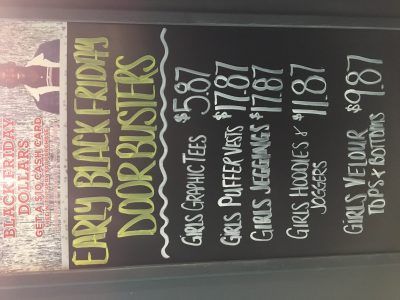 BLACK FRIDAY
DOLLARS
GET A $10 CASH CARD
EARLY BLACK FRIDAY
DOORBUSTERS
GIRLS GRAPHIC TEES $5.87
GIRLS PUFFER VESTS $17.87
GIRLS JEGGINGS $17.87
GIRLS HOODIES & $11.87
JOGGERS
GIRLS VELOUR $9.87
TOPS & BOTTOMS